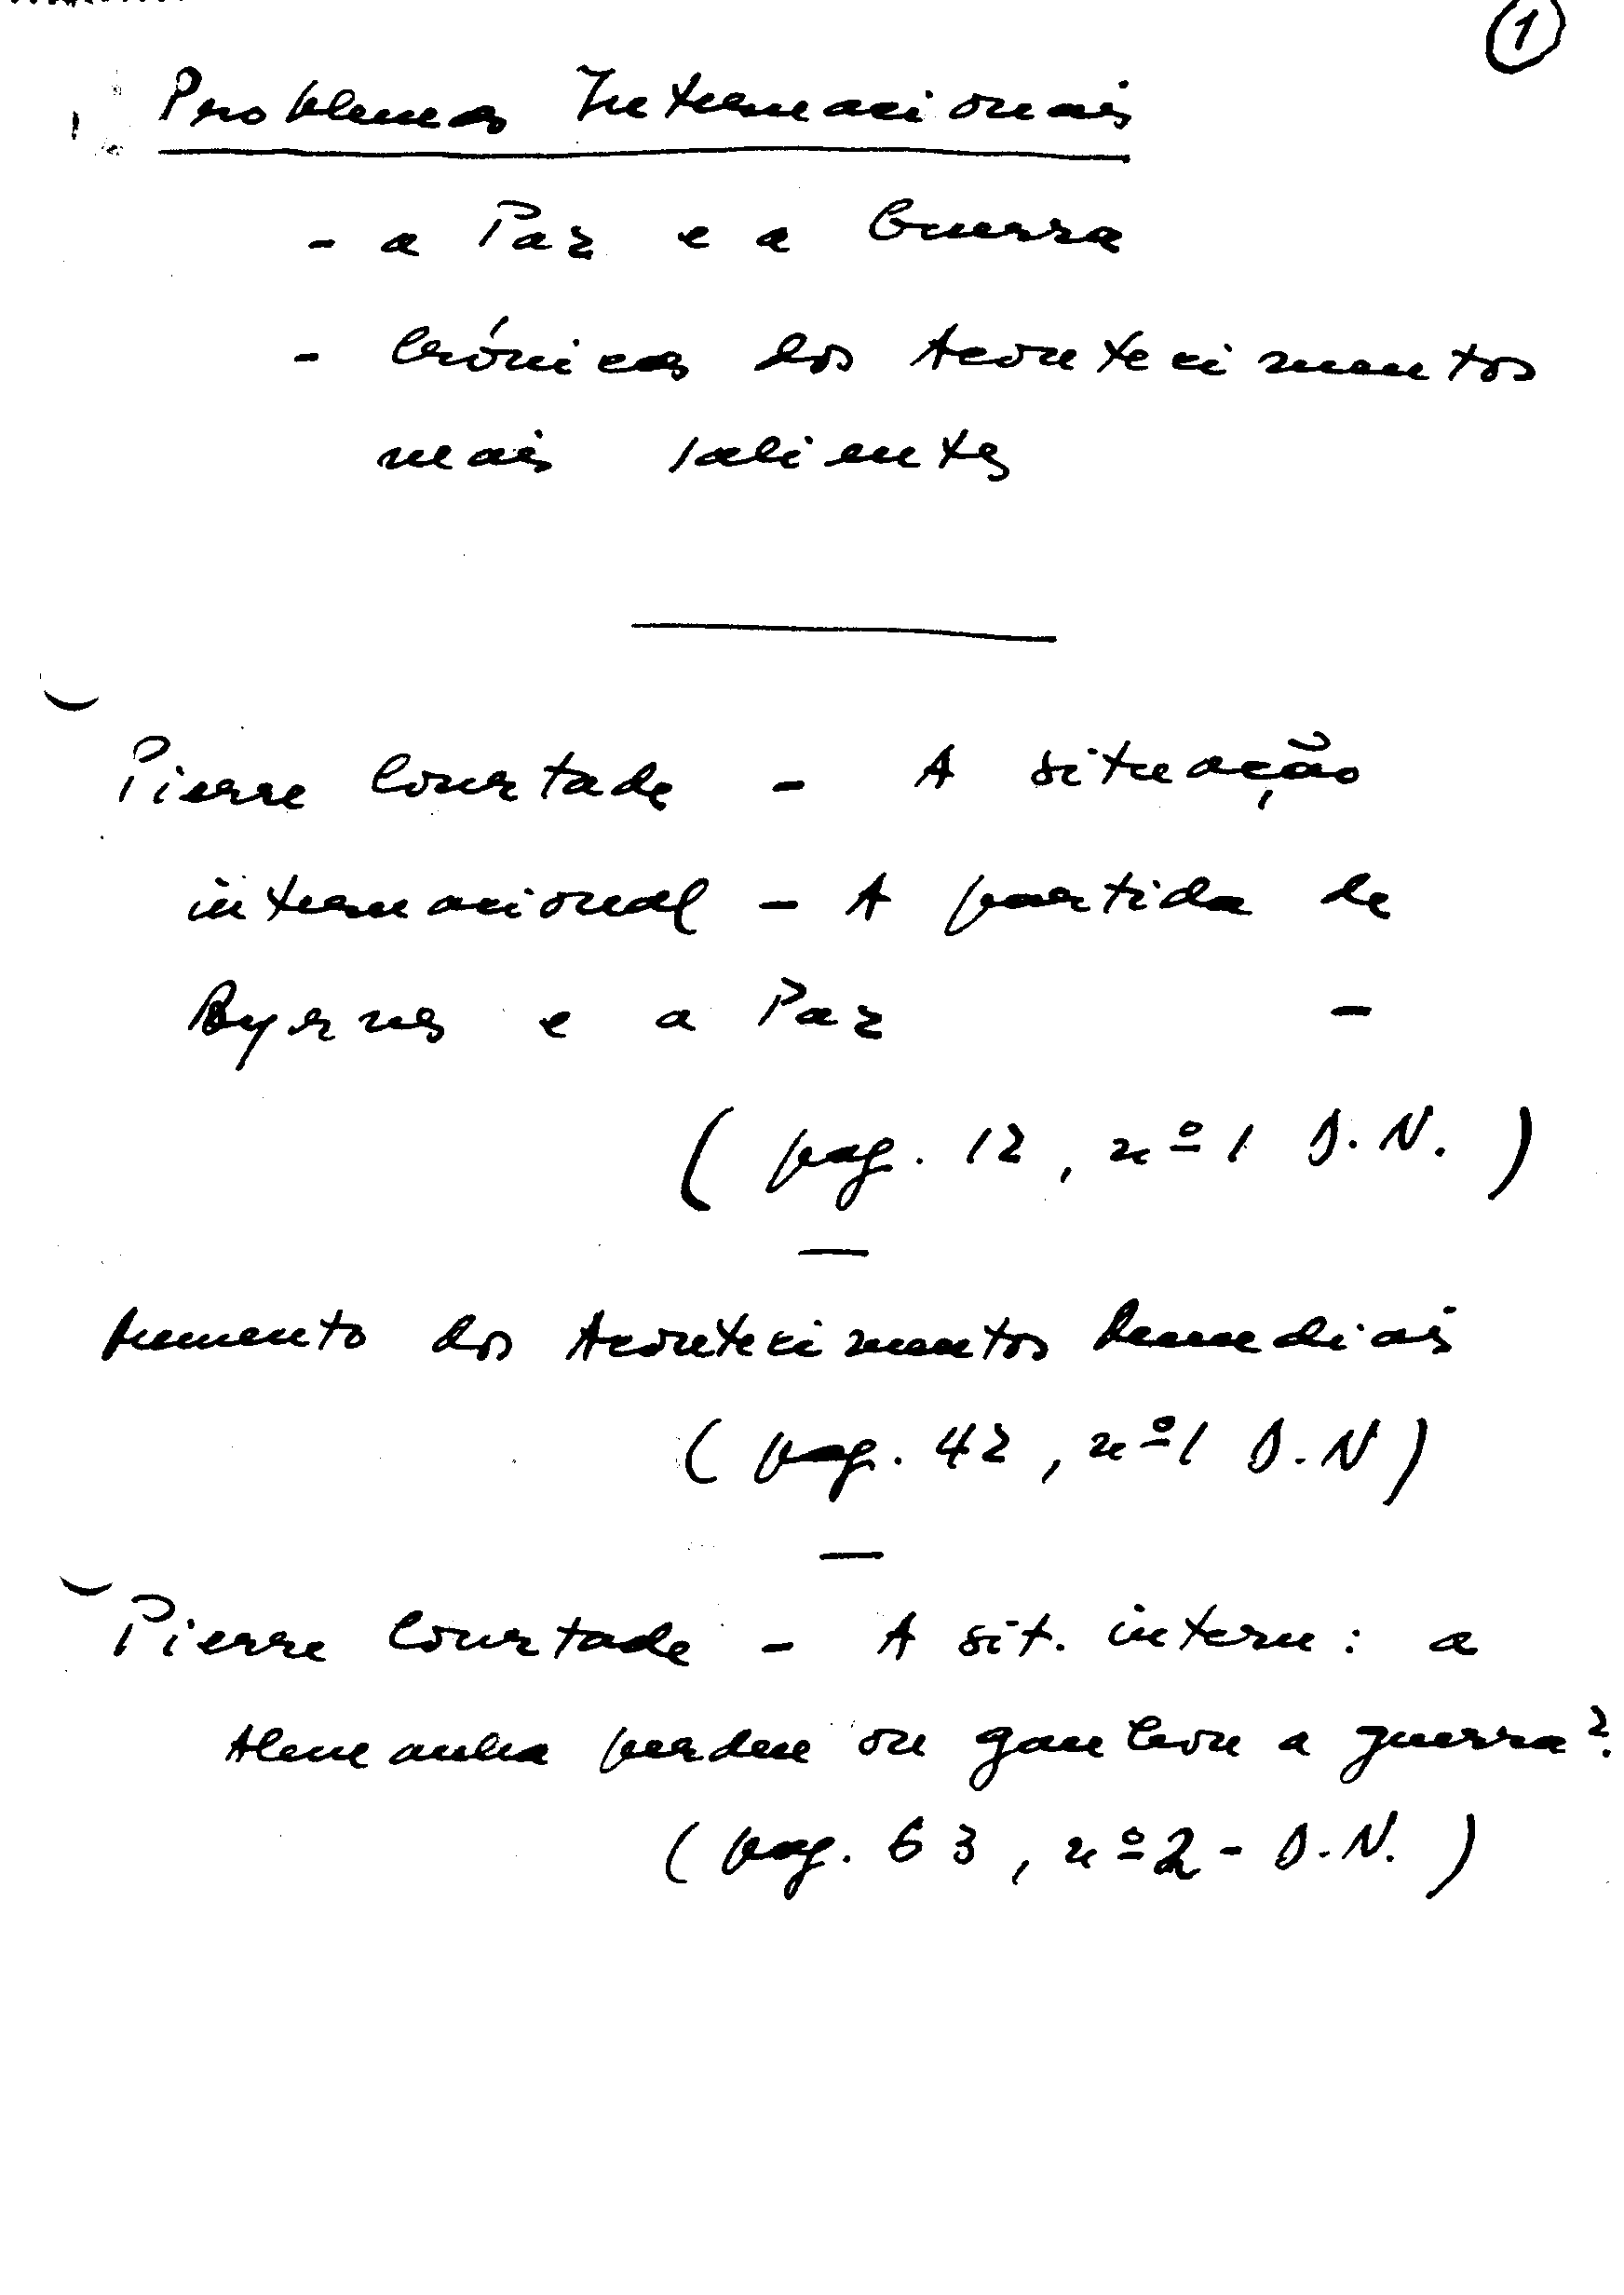 1
Problemas Internacionais
- a Paz e a Guerra
- Crónicas dos Acontecimentos
mais salientes
Pierre Courtade - A situação
internacional - A partida de
Byrnes e a Paz -
( pag. 12, nº 1 D.N. )
dos Acontecimentos
( pag. 42, nº 1 D.N )
Pierre Courtade - A sit. intern: a
Alemanha perdeu ou ganhou a guerra?
( pag. 63, nº 2 - D.N. )